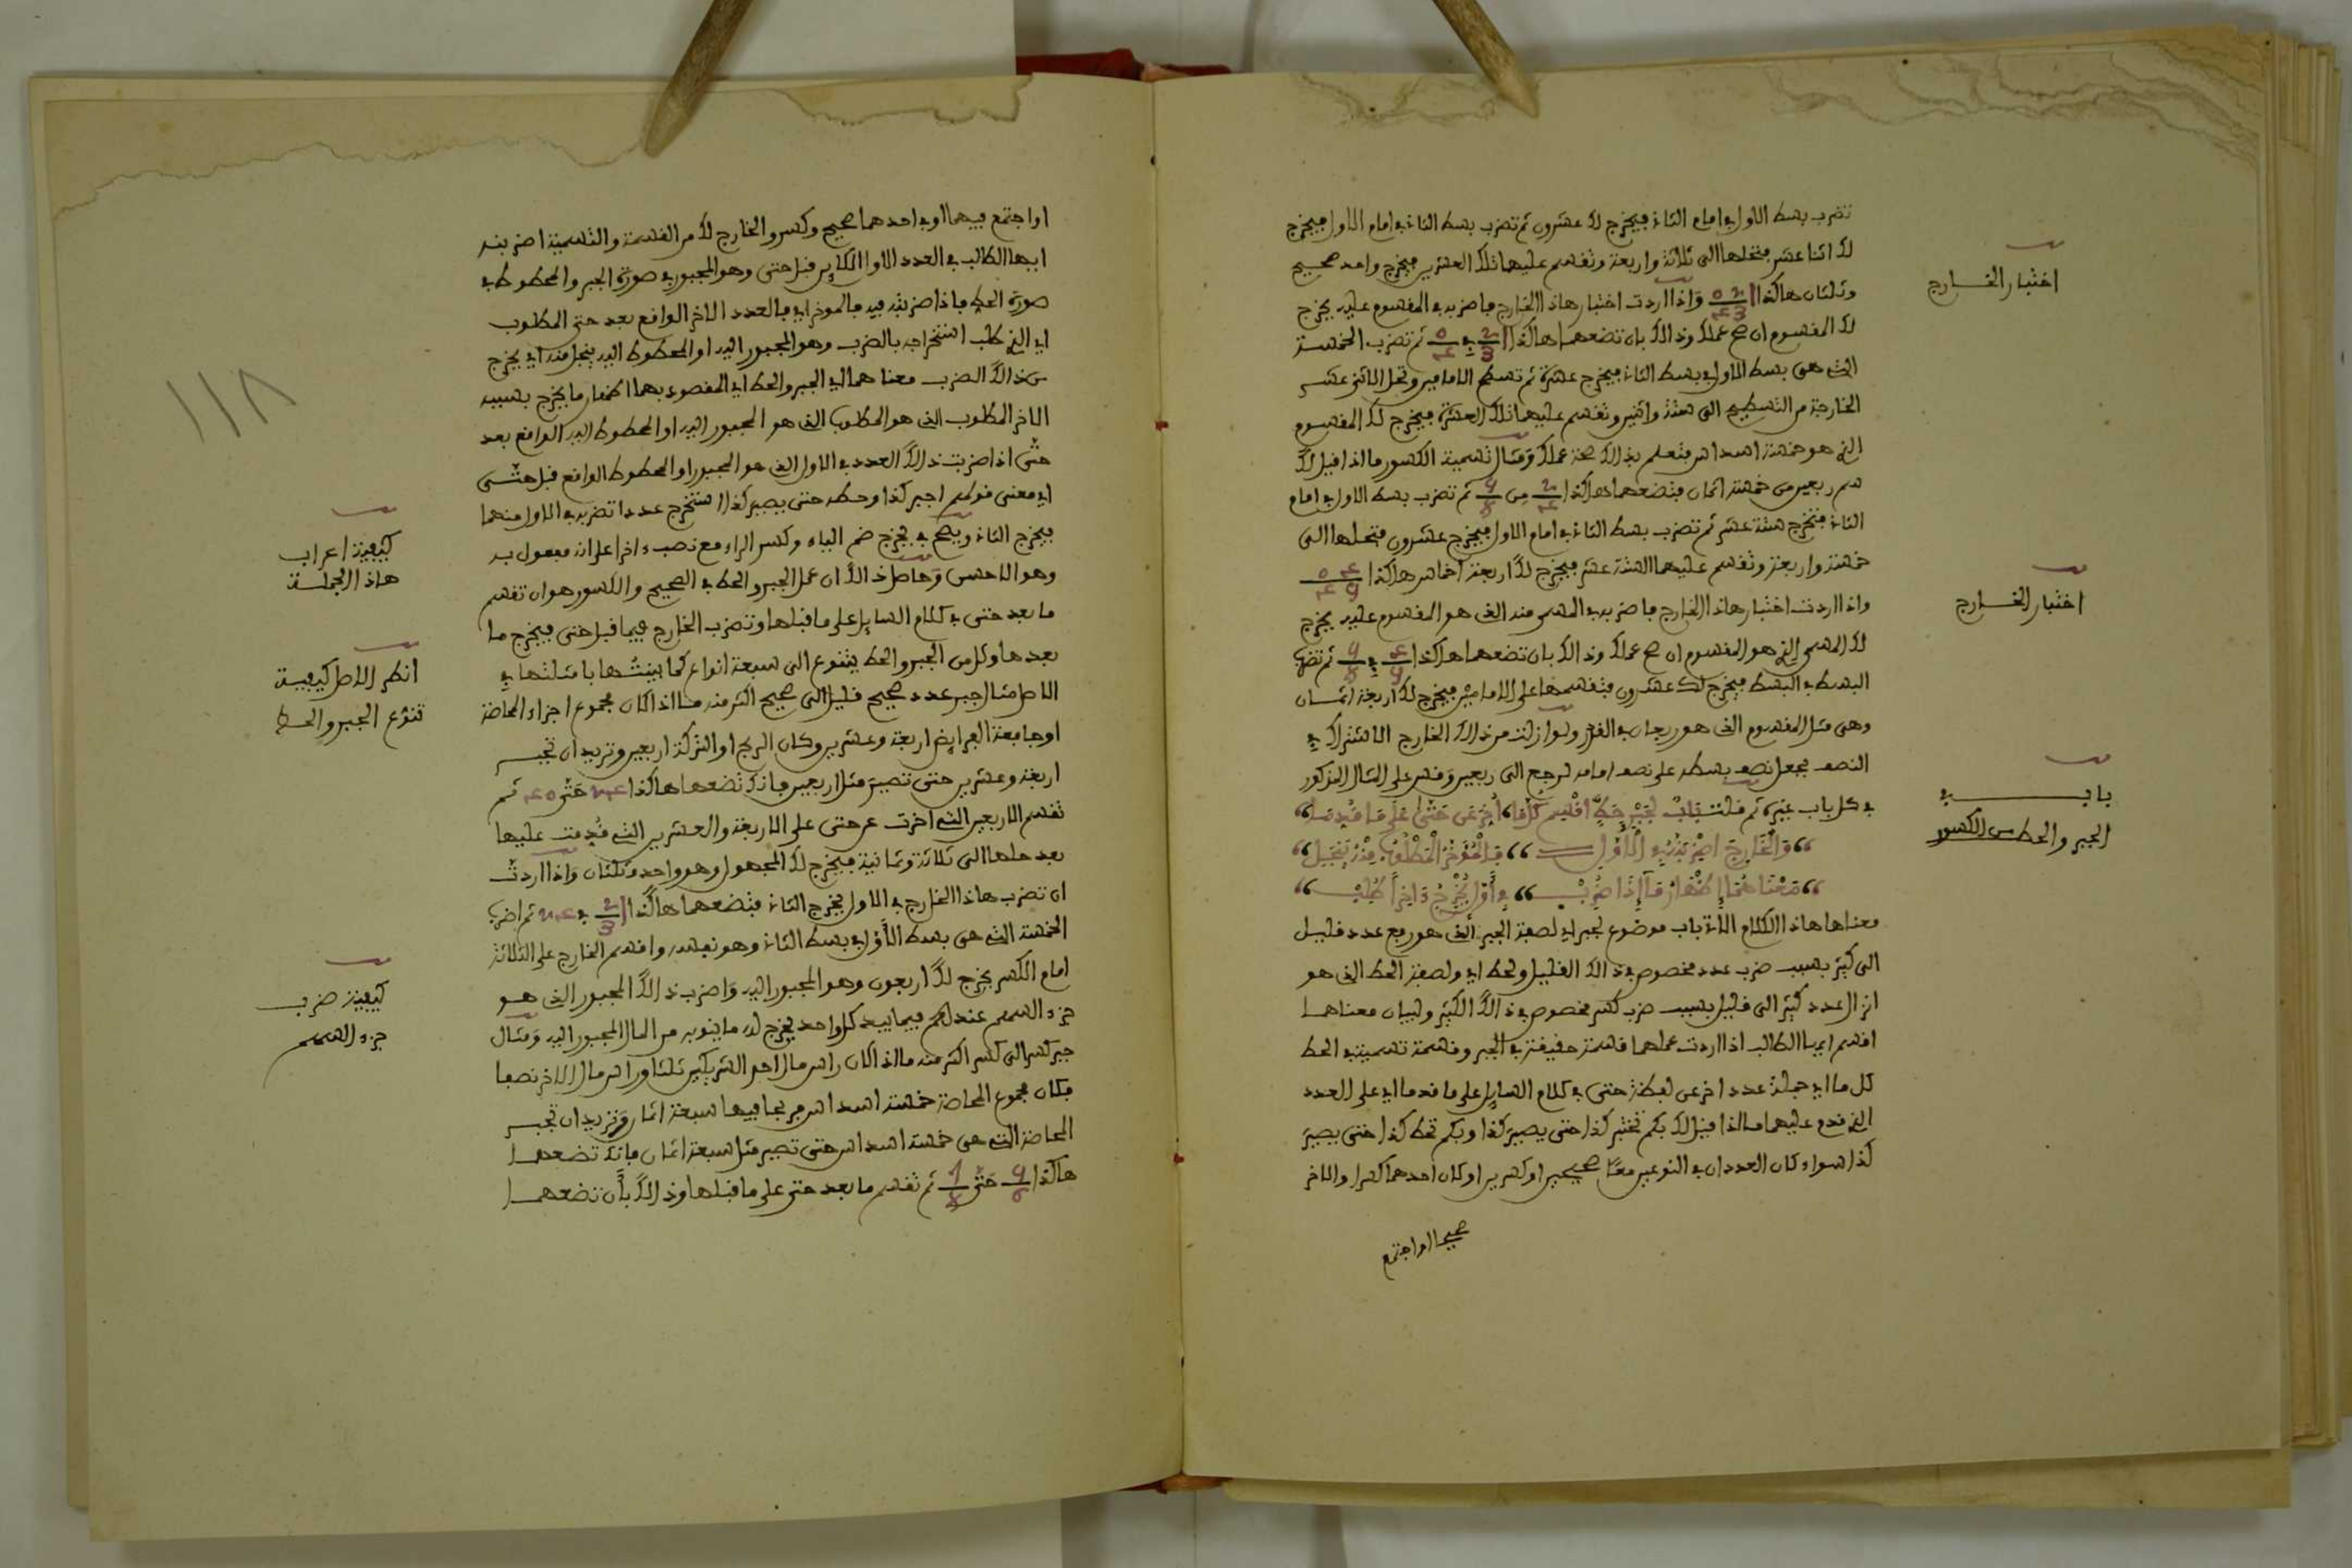 تضرب بسط الاول في امام الثاني فيخرج لك عشرون ثم تضرب بسط الثاني في امام الاول فيخرج
لك اثنا عشر فتحلها الى ثلاثة واربعة وتقسم عليها تلك العشرين فيخرج واحد صحيح
وثلثان هاكذا واذا اردت اختبار هاذا الخارج فاضربه في المقسوم عليه يخرج
لك المقسوم ان صح عملك وذالك بان تضعهما هاكذا 2/3 في ثم تضرب الخمسة
التي هي بسط الاول في بسط الثاني فيخرج عشرة ثم تسطح الامامين وتحل الاثني عشر
الخارجة من التسطيح الى ستة واثنين وتقسم عليهما تلك العشرة فيخرج لك المقسوم
الذي هو خمسة اسداس فتعلم بذالك صحة عملك ومثال تسمية الكسور ما اذا قيل لك
سم ربعين من خمسة اثمان فتضعهما هاكذا من ثم تضرب بسط الاول في امام
الثاني فتخرج ستة عشر ثم تضرب بسط الثاني في امام الاول فيخرج عشرون فتحلها الى
خمسة واربعة وتقسم عليهما الستة عشر فيخرج لك اربعة اخماس هاكذا
واذا اردت اختبار هاذا الخارج فاضربه في المسمى منه الذي هو المقسوم عليه يخرج
لك المسمى الذي هو المقسوم ان صح عملك وذالك بان تضعهما هاكذا في ثم تضرب
البسط في البسط فيخرج لك عشرون فتقسمها على الامامين فيخرج لك اربعة اثمان
وهي مثل المقسوم الذي هو ربعان في القدر ولو ازلت من ذالك الخارج الاشتراك في
النصف بجعل نصف بسطه على نصف امامه لرجع الى ربعين وقس على المثال المذكور
في كل باب غيره ثم قلت باب لجبر حط اقسم كل ما اخر عن حتى على ما قدما
والخارج اضربنه في الاول فالمؤخر المطلوب منه ينجلي
معناهما اظهار ما اذا ضرب في اول يخرج ءاخرا طلب
معناها هاذا الكلام الاتي باب موضوع لجبر اي لصفة الجبر الذي هو رفع عدد قليل
الى كثير بسبب ضرب عدد مخصوص في ذالك القليل ولحط اي ولصفة الحط الذي هو
انزال عدد كثير الى قليل بسبب ضرب كسر مخصوص في ذالك الكثير ولبيان معناهما
اقسم ايها الطالب اذا اردت عملهما قسمة حقيقة في الجبر وقسمة تسمية في الحط
كل ما اي جملة عدد اخر عن لفظة حتى في كلام السايل على ما قدما اي على العدد
الذي قدم عليهما مثلا اذا قيل لك بكم تجبر كذا حتى يصير كذا وبكم تحط كذا حتى يصير
كذا سواء كان العددان في النوعين معا صحيحين او كسرين او كان احدهما كسرا والاخر
صحيحا او اجتمع
اختبار الخارج
اختبار الخارج
باب في
الجبر والحط من الكسور
او اجتمع فيهما او في احدهما صحيح وكسر والخارج لك من القسمة والتسمية اضربنه
ايها الطالب في العدد الاول الكاين قبل حتى وهو المجبور في صورة الجبر والمحطوط في
صورة الحط فاذا ضربته فيه فالموخر اي فالعدد الاخر الواقع بعد حتى المطلوب
اي الذي طلب استخراجه بالضرب وهو المجبور اليه او المحطوط اليه ينجل منه اي يخرج
من ذالك الضرب معناهما اي الجبر والحط اي المقصود بهما اظهار ما يخرج بسببه
الاخر المطلوب الذي هو المطلوب الذي هو المجبور اليه او المحطوط اليه الواقع بعد
حتى اذا ضربت ذالك العدد في الاول الذي هو المجبور او المحطوط الواقع قبل حتى
اي معنى قولهم اجبر كذا وحطه حتى يصير كذا استخرج عددا تضربه في الاول منهما
فيخرج الثاني ويصح في يخرج ضم الياء وكسر الراء مع نصب ءاخرا على انه مفعول به
وهو الاحسن وحاصل ذالك ان عمل الجبر والحط في الصحيح والكسور هو ان تقسم
ما بعد حتى في كلام السايل على ما قبلها وتضرب الخارج فيما قبل حتى فيخرج ما
بعدها وكل من الجبر والحط يتنوع الى سبعة انواع كما بينتها بامثلتها في
الاصل مثال جبر عدد صحيح قليل الى صحيح اكثر منه ما اذا كان مجموع اجزاء المحاصة
او جامعة الفرايض اربعة وعشرين وكان الربح او التركة اربعين وتريد ان تجبر
اربعة وعشرين حتى تصير مثل اربعين فانك تضعها هاكذا حتى ثم
تقسم الاربعين التي اخرت عن حتى على الاربعة والعشرين التي قدمت عليها
بعد حلها الى ثلاثة وثمانية فيخرج لك المجهول وهو واحد وثلثان واذا اردت
ان تضرب هاذا الخارج في الاول يخرج الثاني فتضعهما هاكذا في ثم اضرب
الخمسة التي هي بسط الاول في بسط الثاني وهو نفسه واقسم الخارج على الثلاثة
امام الكسر يخرج لك اربعون وهو المجبور اليه واضرب ذالك المجبور الذي هو
جزء السهم عندهم فيما بيد كل واحد يخرج له ما ينوبه من المال المجبور اليه ومثال
جبر كسر الى كسر اكثر منه ما اذا كان راس مال احد الشريكين ثلثا وراس مال الاخر نصفا
فكان مجموع المحاصة خمسة اسداس فربحا فيها سبعة اثمان وتريد ان تجبر
المحاصة التي هي خمسة اسداس حتى تصير مثل سبعة اثمان فانك تضعهما
هاكذا حتى ثم تقسم ما بعد حتى على ما قبلها وذالك بأن تضعهما
كيفية اعراب
هاذا الجملة
انظر الاصل كيفية
تنوع الجبر والحط
كيفية ضرب
جزء السهم
١١٨